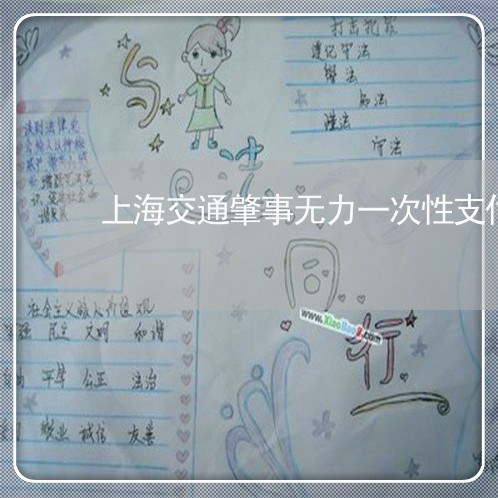 打击犯罪
遵纪守法
学法
知法
懂法
守法
与
法
同
行
上海交通肇事无力一次性支
www.XiaoBao8.com
社会主义核心价值观
强 民主 文明 和谐
由 平等 公正 法治
敬业 诚信 友善